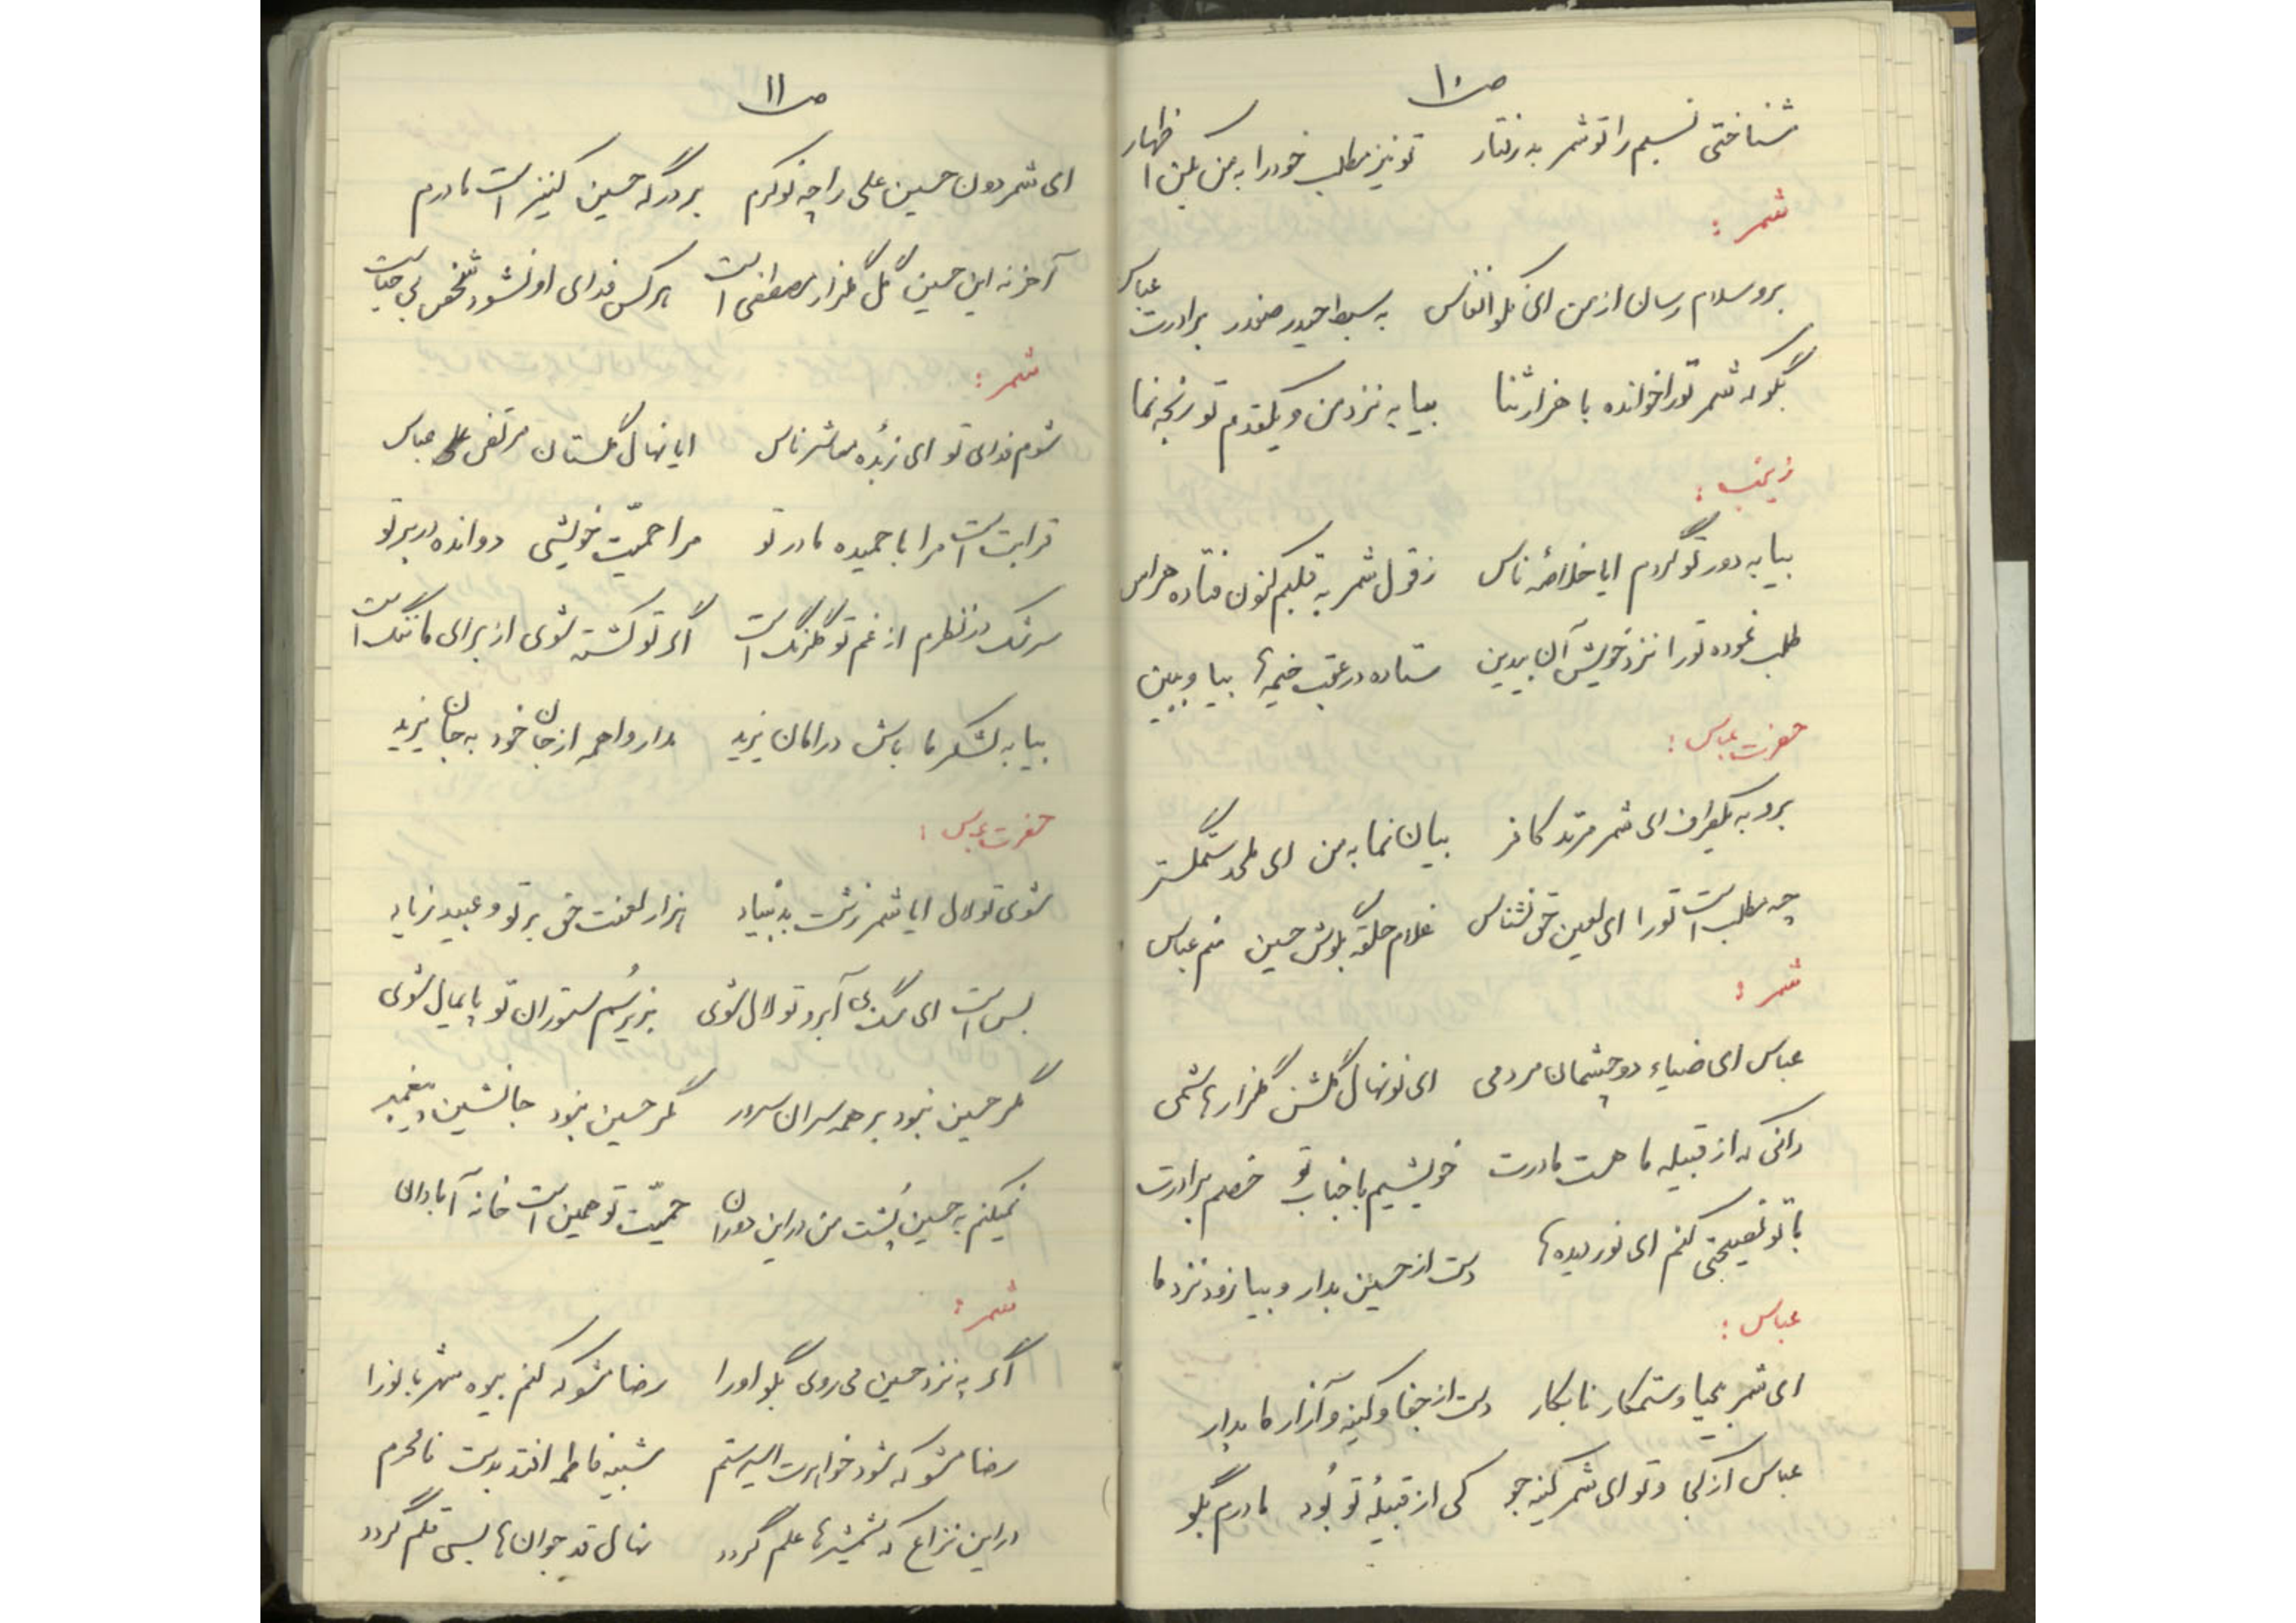 ص ۱۰
شناختی نسبم را تو شمر بد رفتار تو نیز مطلب خود را به من بکن اظهار
شمر :
برو سلام رسان از من ای نکو انفاس به سبط حیدر صفدر برادرت عباس
بگو که شمر تو را خوانده با هزار ثنا بیا به نزد من و یکقدم تو رنجه نما
زینب :
بیا به دور تو گردم ایا خلاصهٔ ناس ز قول شمر به قلبم کنون فتاده هراس
طلب نموده تو را نزد خویش آن بیدین ستاده در عقب خیمه‌ها بیا و ببین
حضرت عباس :
برو به یکطرف ای شمر مرتد کافر بیان نما به من ای ملحد ستمگستر
چه مطلب است تو را ای لعین حق نشناس غلام حلقه بگوش حسین منم عباس
شمر :
عباس ای ضیاء دو چشمان مردمی ای نونهال گلشن گلزار هاشمی
دانی که از قبیله ما هست مادرت خویشیم با جناب تو خصم برادرت
با تو نصیحتی کنم ای نور دیده‌ها دست از حسین بدار و بیا زود نزد ما
عباس :
ای شمر بیحیا و ستمکار نابکار دست از جفا و کینه و آزار ما بدار
عباس از کجا و تو ای شمر کینه جو کی از قبیلهٔ تو بُود مادرم بگو
ص ۱۱
ای شمر دون حسین علی را چه نوکرم بر درگه حسین کنیز است مادرم
آخر نه این حسین گل گلزار مصطفی است هرکس فدای او نشود شخص بی حیاست
شمر :
شوم فدای تو ای زبده معاشر ناس ایا نهال گلستان مرتضی عباس
قرابت است مرا با حمیده مادر تو مرا حمیّت خویشی دوانده در بر تو
سرشک در نظرم از غم تو گلرنگ است اگر تو کشته شوی از برای ما ننگ است
بیا به لشکر ما باش در امان یزید مدار واهمه از جان خود به جان یزید
حضرت عباس :
شوی تو لال ایا شمر زشت بد بنیاد هزار لعنت حق بر تو و عبید زیاد
بس است ای سگ بی آبرو تو لال شوی بزیر سُم ستوران تو پایمال شوی
مگر حسین نبود بر همه سران سرور مگر حسین نبود جانشین پیغمبر
نمیکنم به حسین پُشت من در این دوران حمیّت تو همین است خانه آبادان
شمر :
اگر به نزد حسین می روی بگو او را رضا مشو که کنم بیوه شهربانو را
رضا مشو که شود خواهرت اسیر ستم شبیه فاطمه افتد بدست نامحرم
در این نزاع که شمشیرها علم گردد نهال قد جوان‌ها بسی قلم گردد